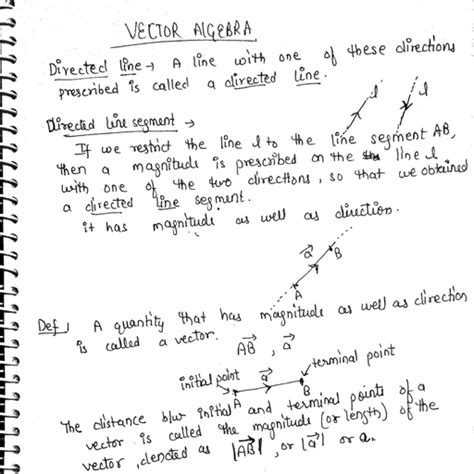 VECTOR ALGEBRA
Directed line → A line with one of these directions
prescribed is called a directed line.
l
l
Directed line segment →
If we restrict the line l to the line segment AB,
then a magnitude is prescribed on the line l
with one of the two directions, so that we obtained
a directed line segment.
it has magnitude as well as direction.
a⃗
B
A
Def, A quantity that has magnitude as well as direction
is called a vector. AB⃗, a⃗
initial point a⃗ terminal point
A B
The distance b/w initial and terminal points of a
vector is called the magnitude (or length) of the
vector, denoted as |AB⃗|, or |a⃗| or a.